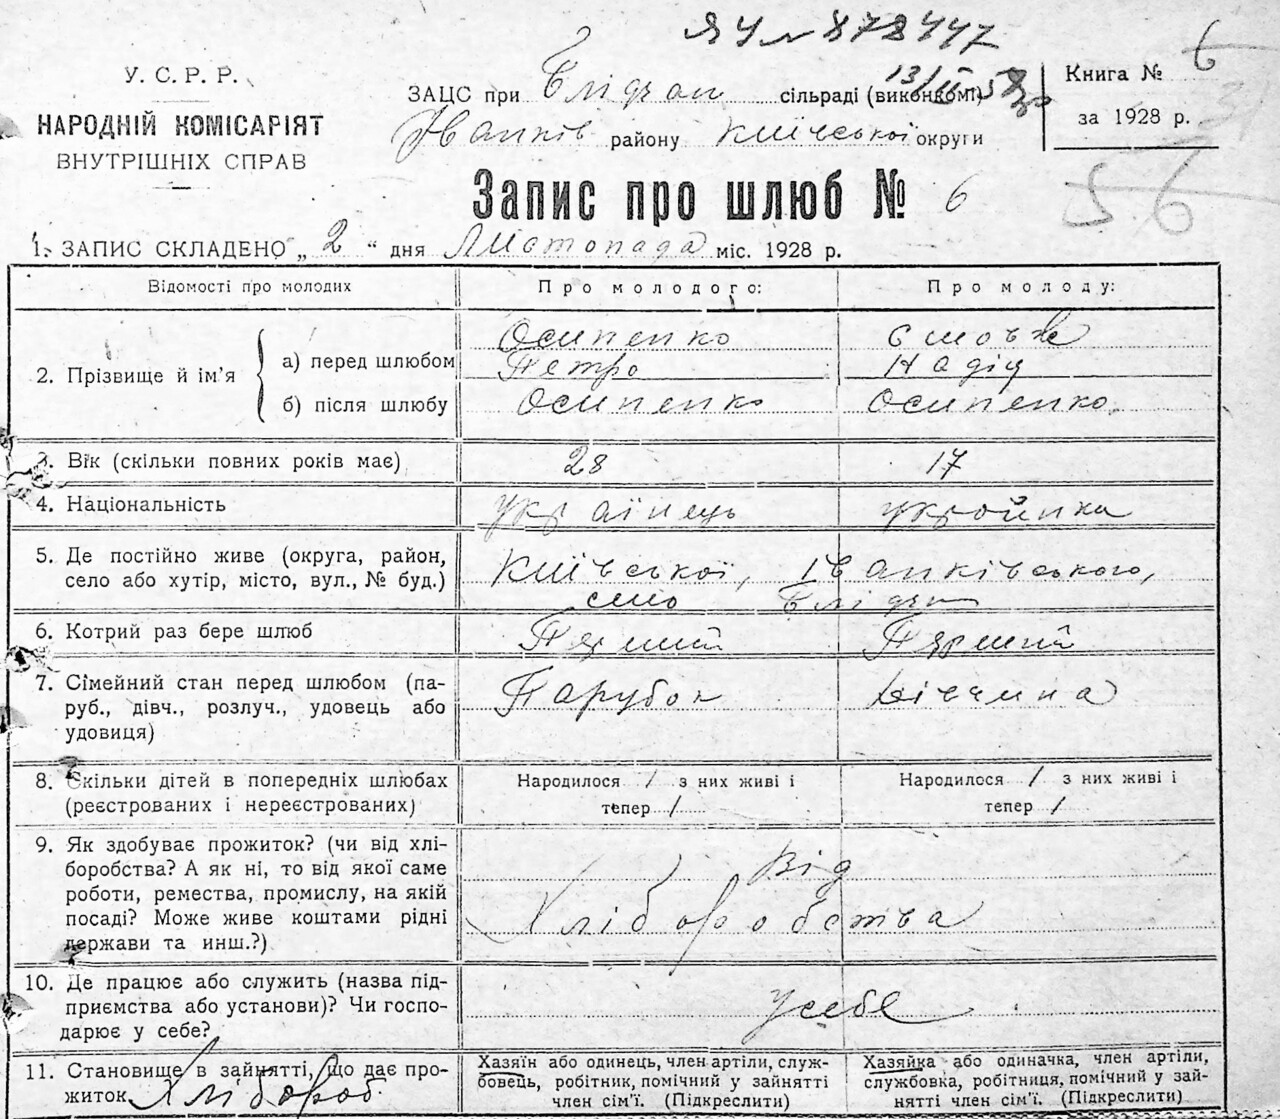 ЯЧ № 878447
13/II-58р
У. С. Р. Р.
НАРОДНІЙ КОМІСАРІЯТ
ВНУТРІШНІХ СПРАВ
ЗАЦС при Блідчан сільраді (виконкомі)
Іванків району Київської округи
Книга № 6
за 1928 р.
56
Запис про шлюб № 6
1. ЗАПИС СКЛАДЕНО „ 2 “ дня Листопада міс. 1928 р.
Відомості про молодих Про молодого: Про молоду:
2. Прізвище й ім’я
а) перед шлюбом Осипенко Петро Надія
б) після шлюбу Осипенко Осипенко
3. Вік (скільки повних років має) 28 17
4. Національність українець українка
5. Де постійно живе (округа, район, Київської, Іванківського,
село або хутір, місто, вул., № буд.) село Блідча
6. Котрий раз бере шлюб Перший Перший
7. Сімейний стан перед шлюбом (па- Парубок Дівчина
руб., дівч., розлуч., удовець або
удовиця)
8. Скільки дітей в попередніх шлюбах Народилося / з них живі і Народилося / з них живі і
(реєстрованих і нереєстрованих) тепер / тепер /
9. Як здобуває прожиток? (чи від хлі- Від
боробства? А як ні, то від якої саме
роботи, ремества, промислу, на якій Хліборобства
посаді? Може живе коштами рідні
держави та инш.?)
10. Де працює або служить (назва під-
приємства або установи)? Чи госпо- у себе
дарює у себе?
11. Становище в зайнятті, що дає про- Хазяїн або одинець, член артіли, служ- Хазяйка або одиначка, член артіли,
житок Хлібороб. бовець, робітник, помічний у зайнятті службовка, робітниця, помічний у зай-
член сім’ї. (Підкреслити) нятті член сім’ї. (Підкреслити)